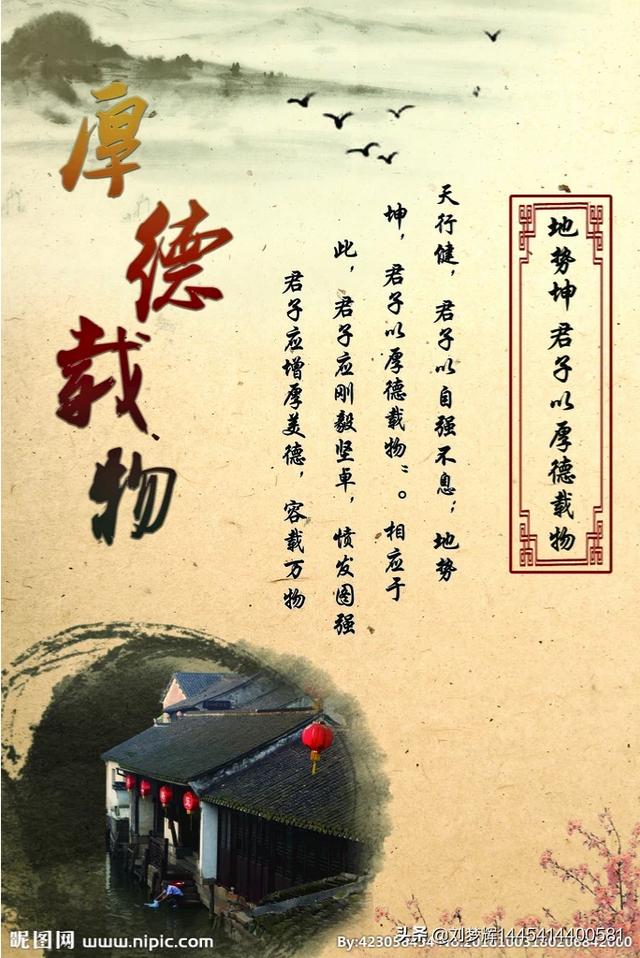 地势坤 君子以厚德载物
天行健，君子以自强不息；地势
坤，君子以厚德载物”。相应于
此，君子应刚毅坚卓，愤发图强
君子应增厚美德，容载万物
厚德载物
昵图网 www.nipic.com
头条@刘梦辉1445414400581